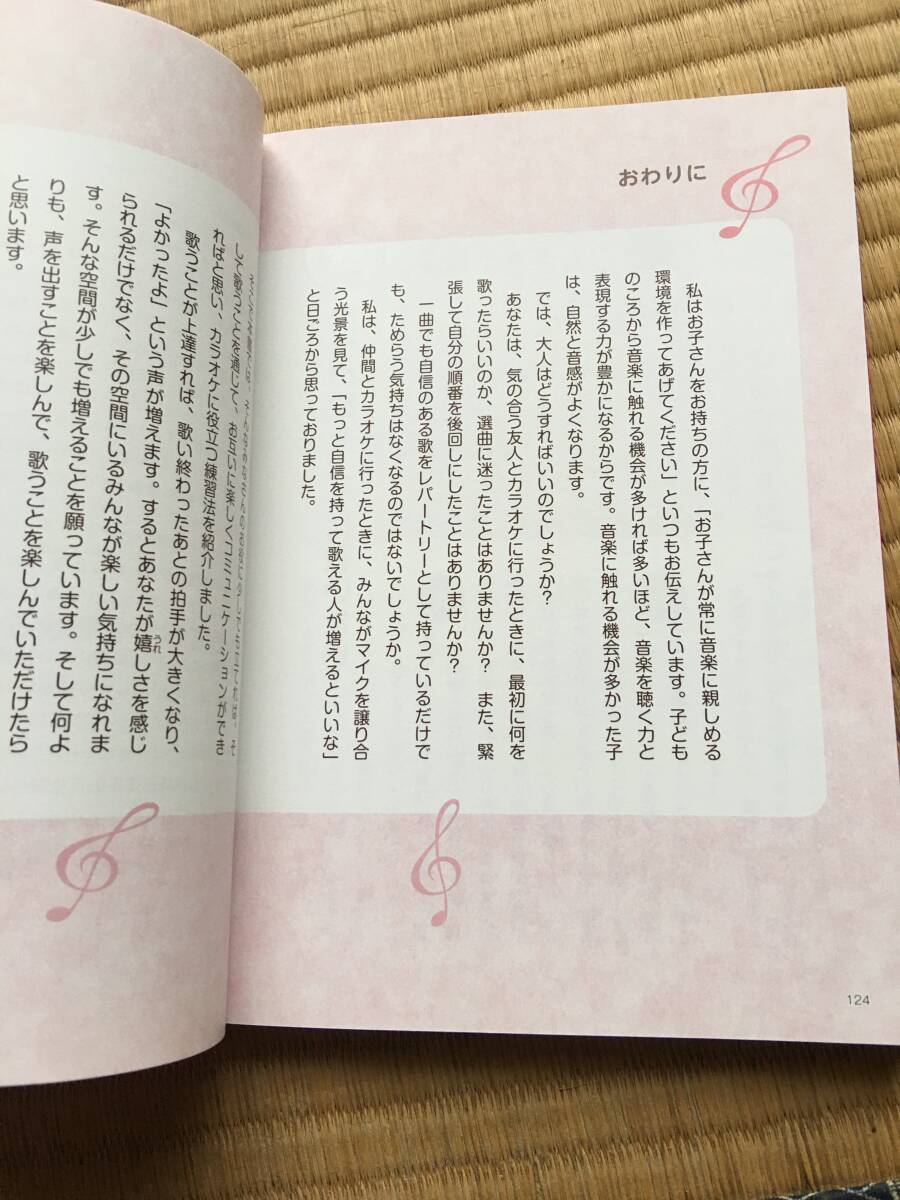 おわりに
私はお子さんをお持ちの方に、「お子さんが常に音楽に親しめる
環境を作ってあげてください」といつもお伝えしています。子ども
のころから音楽に触れる機会が多ければ多いほど、音楽を聴く力と
表現する力が豊かになるからです。音楽に触れる機会が多かった子
は、自然と音感がよくなります。
では、大人はどうすればいいのでしょうか？
あなたは、気の合う友人とカラオケに行ったときに、最初に何を
歌ったらいいのか、選曲に迷ったことはありませんか？　また、緊
張して自分の順番を後回しにしたことはありませんか？
一曲でも自信のある歌をレパートリーとして持っているだけで
も、ためらう気持ちはなくなるのではないでしょうか。
私は、仲間とカラオケに行ったときに、みんながマイクを譲り合
う光景を見て、「もっと自信を持って歌える人が増えるといいな」
と日ごろから思っておりました。
124
して歌うことを通じて、お互いに楽しくコミュニケーションができ
ればと思い、カラオケに役立つ練習法を紹介しました。
歌うことが上達すれば、歌い終わったあとの拍手が大きくなり、
「よかったよ」という声が増えます。するとあなたが嬉しさを感じ
られるだけでなく、その空間にいるみんなが楽しい気持ちになれま
す。そんな空間が少しでも増えることを願っています。そして何よ
りも、声を出すことを楽しんで、歌うことを楽しんでいただけたら
と思います。